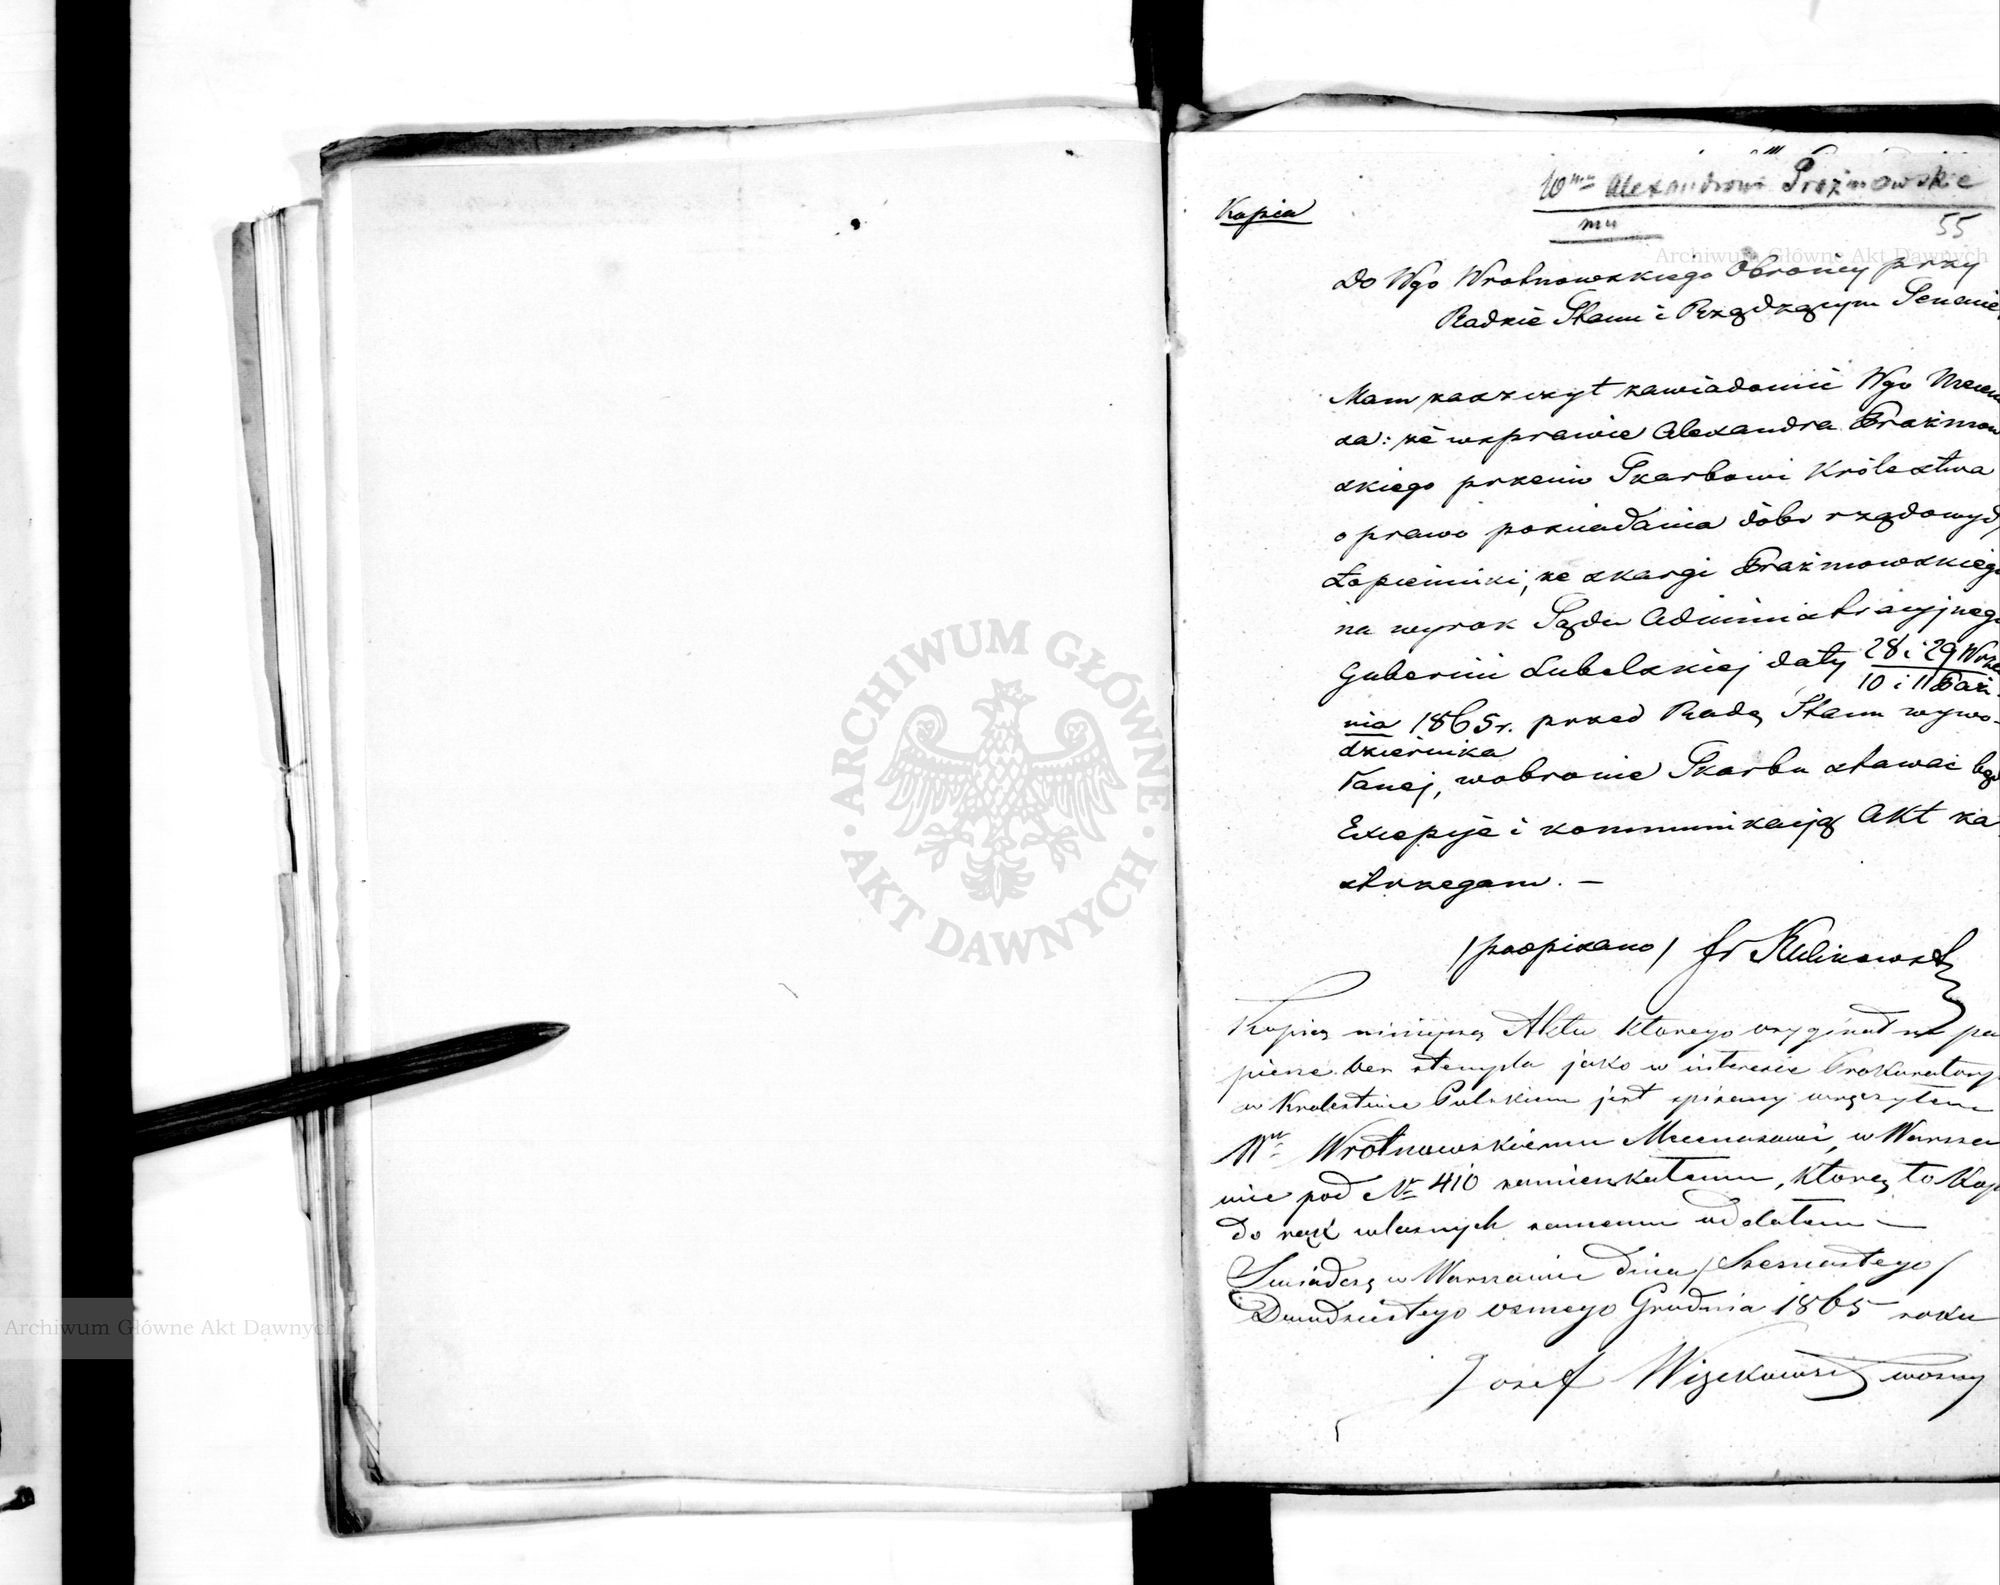 Wmu Alexandrowi Prażmowskie
mu
55
Kopia
Archiwum Główne Akt Dawnych
Do Wgo Wrotnowskiego Obrońcy przy
Radzie Stanu i Rządzącym Senacie
Mam zaszczyt zawiadomić Wgo Mecen
sa: że wsprawie Alexandra Prażmow
skiego przeciw Skarbowi Królestwa
o prawo posiadania dóbr rządowych
Łopienniki, ze skargi Prażmowskiego
na wyrok Sądu Administracyjnego
Gubernii Lubelskiej daty 28 i 29 Wrze
10 i 11 Paź
nia 1865 r. przed Radą Stanu wywo-
dziernika
łanej, wobronie Skarbu stawać będę
Excepcje i kommunikacją Akt za
strzegam. —
/podpisano/ fr Kulikowski
Kopią niniejszą Aktu którego oryginał na pa
pierze bez stempla jako w interesie Prokuratoryi
w Królestwie Polskiem jest spisany wręczyłem
Wmu Wrotnowskiemu Mecenasowi, w Warsza
wie pod Nr 410 zamieszkałemu, którą to Kop
do rąk własnych samemu oddałem —
Świadczą w Warszawie dnia /Szesnastego/
Dwudziestego osmego Grudnia 1865 roku
Jozef woźny
ARCHIWUM GŁÓWNE
AKT DAWNYCH
Archiwum Główne Akt Dawnych